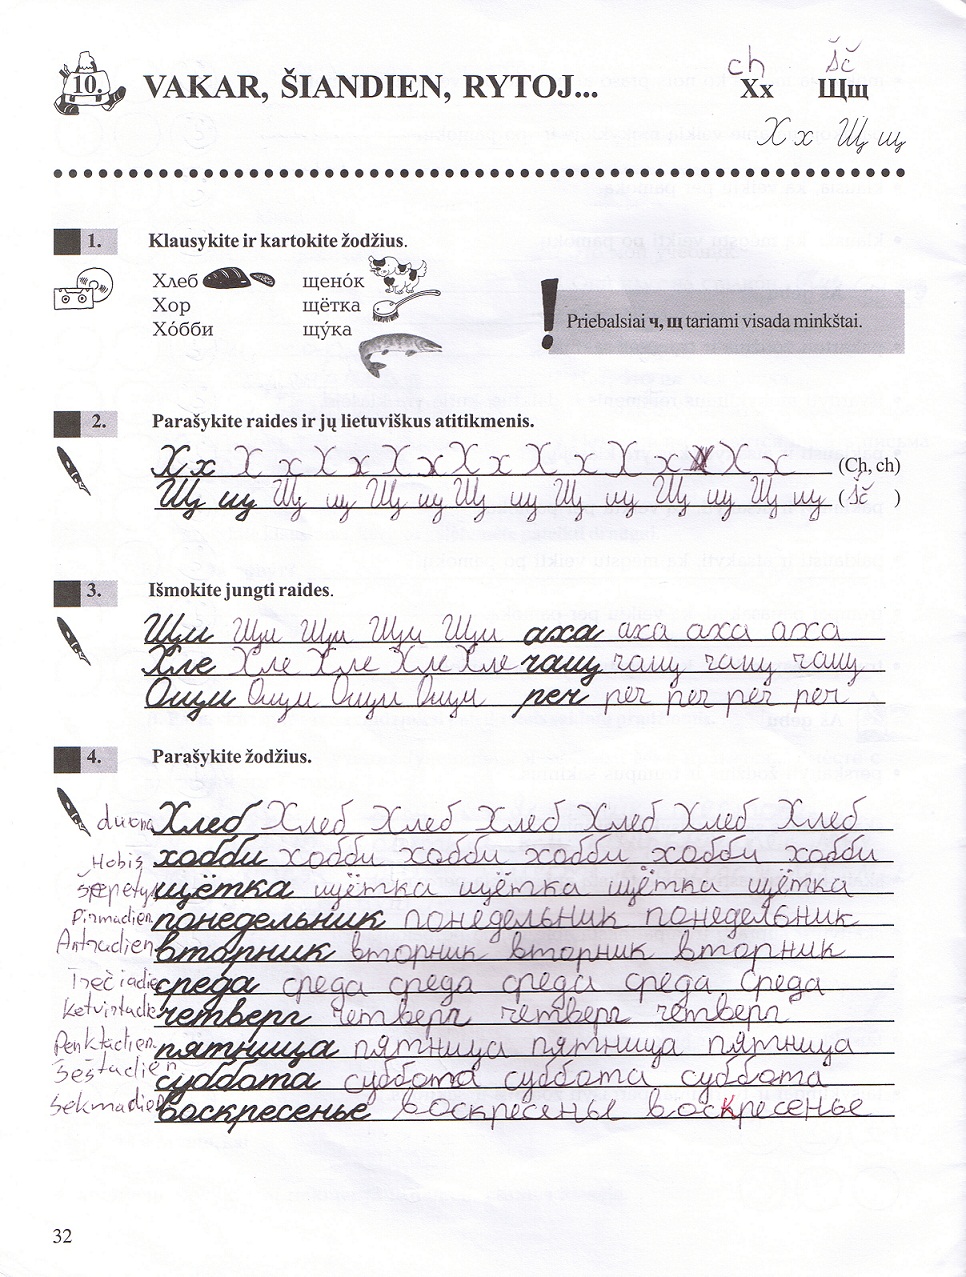 10. VAKAR, ŠIANDIEN, RYTOJ...
ch šč
Хх Щщ
Х х Щ щ
1. Klausykite ir kartokite žodžius.
Хлеб щенóк
Хор щётка
Хóбби щýка
! Priebalsiai ч, щ tariami visada minkštai.
2. Parašykite raides ir jų lietuviškus atitikmenis.
Х х Х х Х х Х х Х х Х х Х х Х х (Ch, ch)
Щ щ Щ щ Щ щ Щ щ Щ щ Щ щ Щ щ (šč )
3. Išmokite jungti raides.
Щи Щи Щи Щи Щи аха аха аха аха
Хле Хле Хле Хле Хле чащ чащ чащ чащ
Ощи Ощи Ощи Ощи реч реч реч реч реч
4. Parašykite žodžius.
duona Хлеб Хлеб Хлеб Хлеб Хлеб Хлеб Хлеб
Hobis хобби хобби хобби хобби хобби хобби
šepetys щётка щётка щётка щётка щётка
Pirmadien понедельник понедельник понедельник
Antradien вторник вторник вторник вторник
Trečiadie среда среда среда среда среда среда
Ketvirtadie четверг четверг четверг четверг
Penktadien пятница пятница пятница пятница
Šeštadien суббота суббота суббота суббота
Sekmadien воскресенье воскресенье воскресенье
32